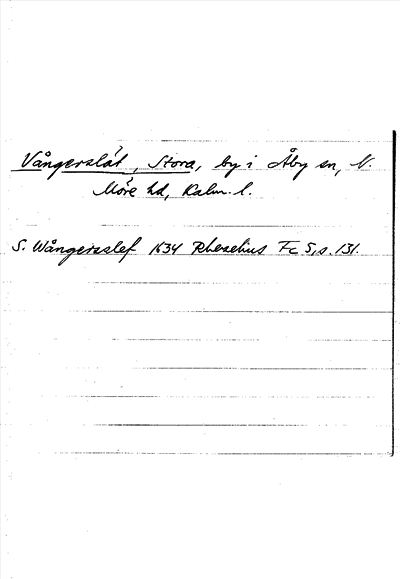 Vångerslät, Stora, by i Åby sn, N.
Möre hd, Kalm. l.
S. Wångersslef 1634 Rhezelius Fc 5, s. 131.